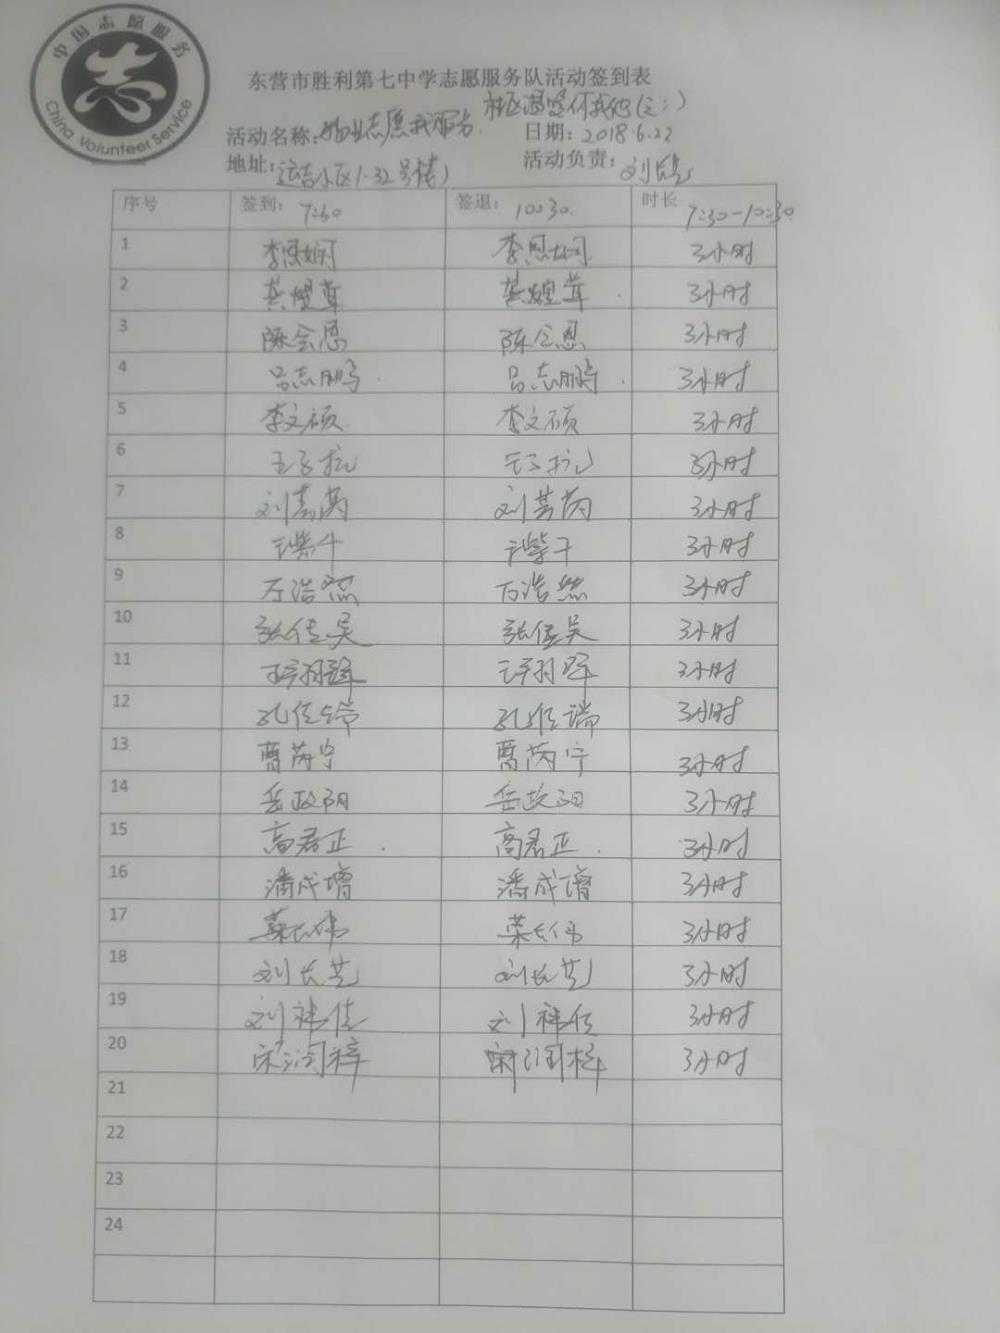 中国志愿服务
志
China Volunteer Service
东营市胜利第七中学志愿服务队活动签到表
社区温暖你我他(之二)
活动名称:物业志愿我服务 日期: 2018.6.22
地址:运吉小区1-32号楼) 活动负责:刘长
序号 签到: 7:30 签退: 10:30. 时长 7:30-10:30.
1 李恩娴 李恩娴 3小时
2 龚煜茸 龚煜茸 3小时
3 陈会恩 陈会恩 3小时
4 吕志鹏 吕志鹏 3小时
5 李文硕 李文硕 3小时
6 王子 王子 3小时
7 刘 芮 刘 芮 3小时
8 3小时
9 万浩然 万浩然 3小时
10 张佳昊 张佳昊 3小时
11 羽 羽 3小时
12 孔佳瑞 孔佳瑞 3小时
13 曹芮宁 曹芮宁 3小时
14 岳政阳 岳政阳 3小时
15 高君正 高君正 3小时
16 潘成增 潘成增 3小时
17 荣长伟 荣长伟 3小时
18 刘长芝 刘长芝 3小时
19 刘祎佳 刘祎佳 3小时
20 宋润梓 宋润梓 3小时
21
22
23
24